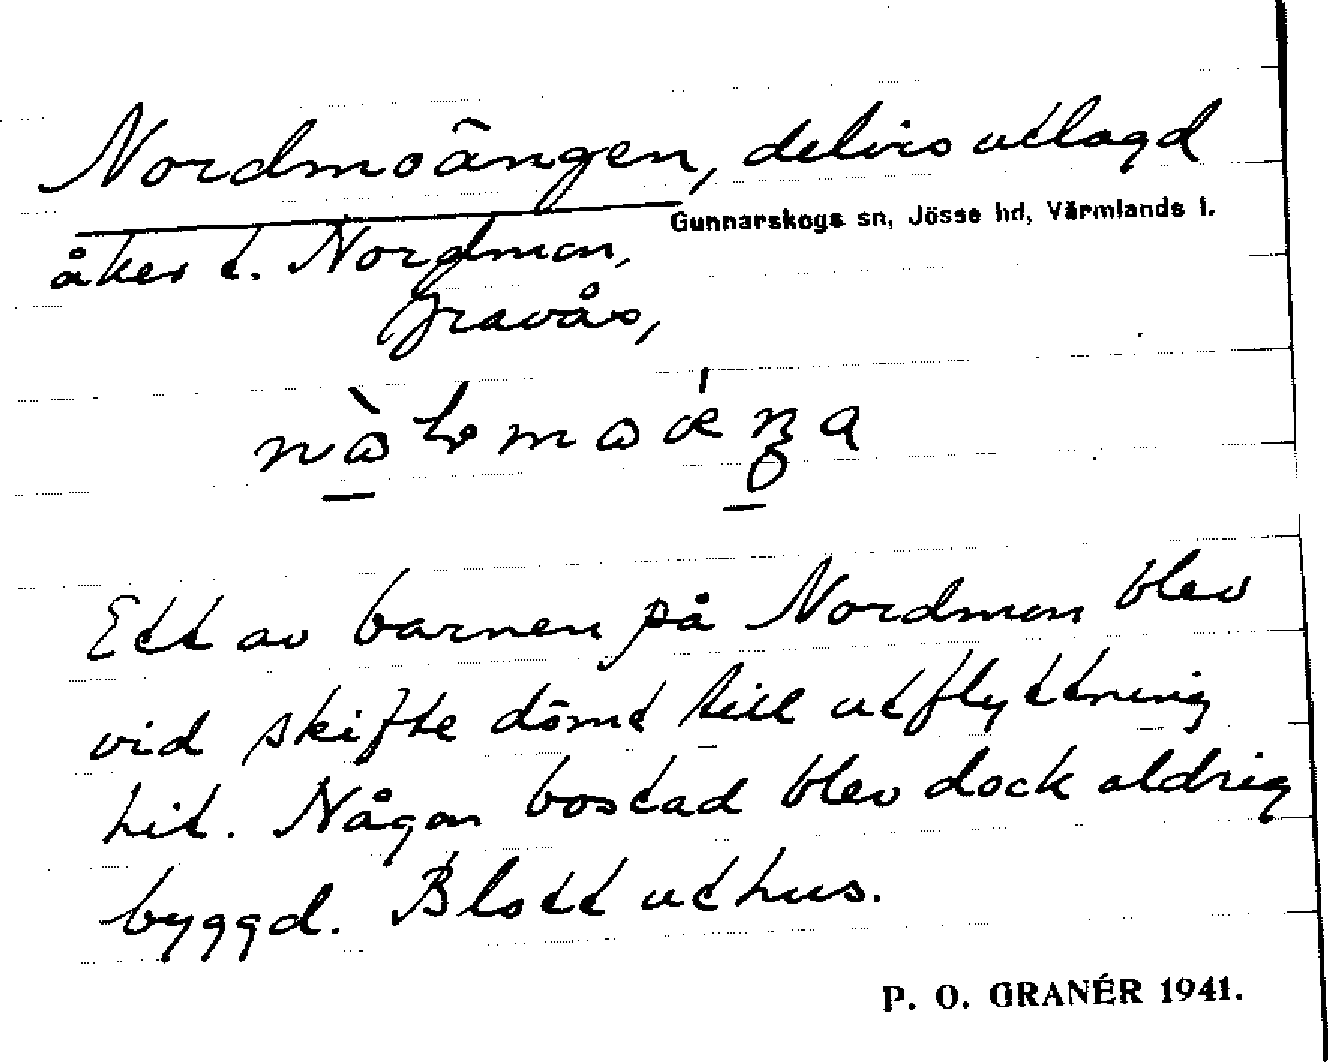 Nordmoängen, delvis utlagd
Gunnarskogs sn, Jösse hd, Värmlands l.
åker t. Nordmon,
Gravås,
Ett av barnen på Nordmon blev
vid skifte dömt till utflyttning
hit. Någon bostad blev dock aldrig
byggd. Blott uthus.
P. O. GRANÉR 1941.